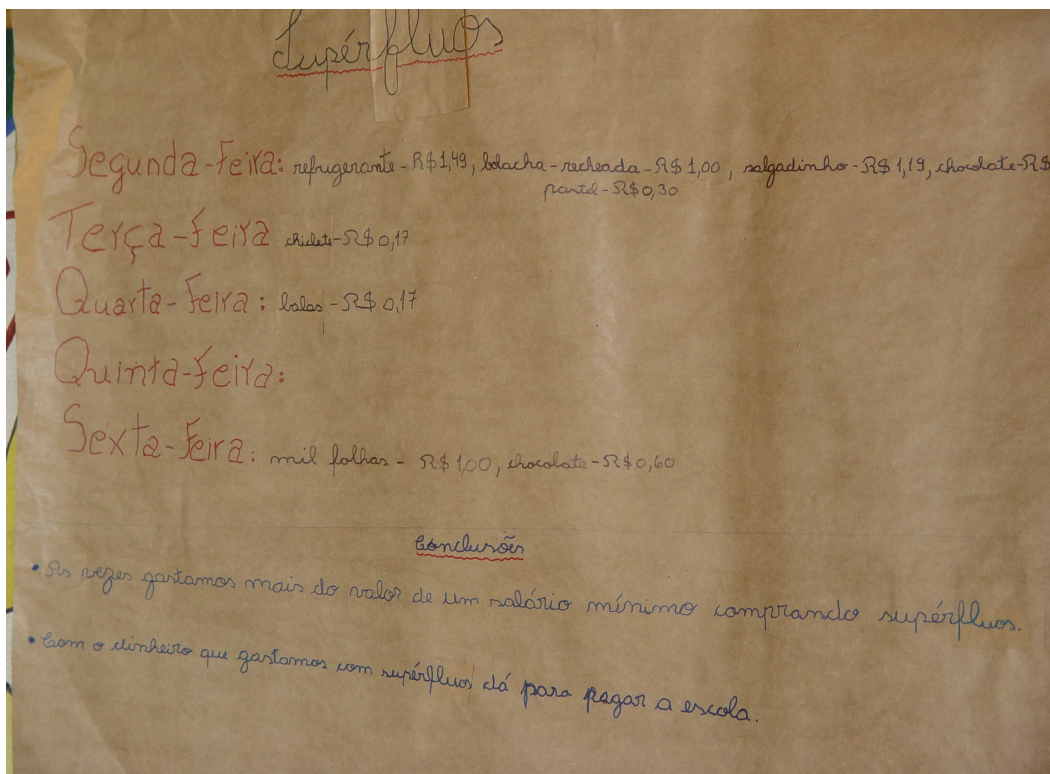 Supérfluos
Segunda-Feira: refrigerante - R$ 1,49, bolacha - recheada - R$ 1,00, salgadinho - R$ 1,19, chocolate - R$
pastel - R$ 0,30
Terça-Feira chiclete - R$ 0,17
Quarta-Feira: balas - R$ 0,17
Quinta-Feira:
Sexta-Feira: mil folhas - R$ 1,00, chocolate - R$ 0,60
Conclusões
• As vezes gastamos mais do valor de um salário mínimo comprando supérfluos.
• Com o dinheiro que gastamos com supérfluos dá para pagar a escola.